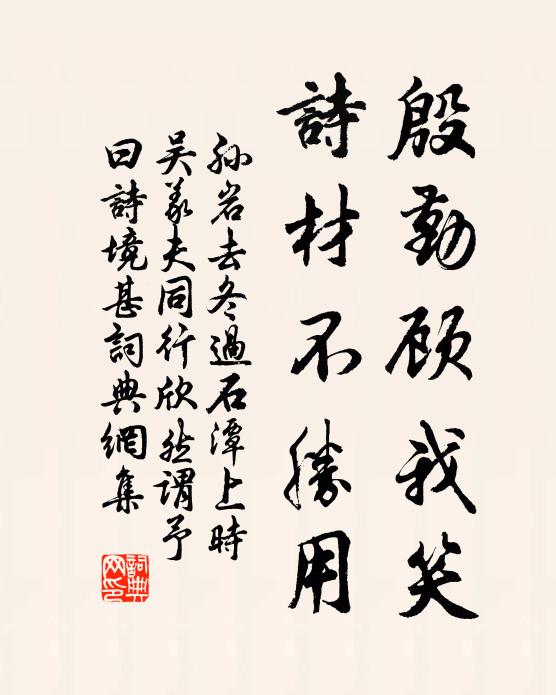 殷勤顾我笑
詩材不勝用
孙岩去冬過石潭上時
吴義夫同行欣然謂予
曰詩境甚詞典網集
詞典
网印